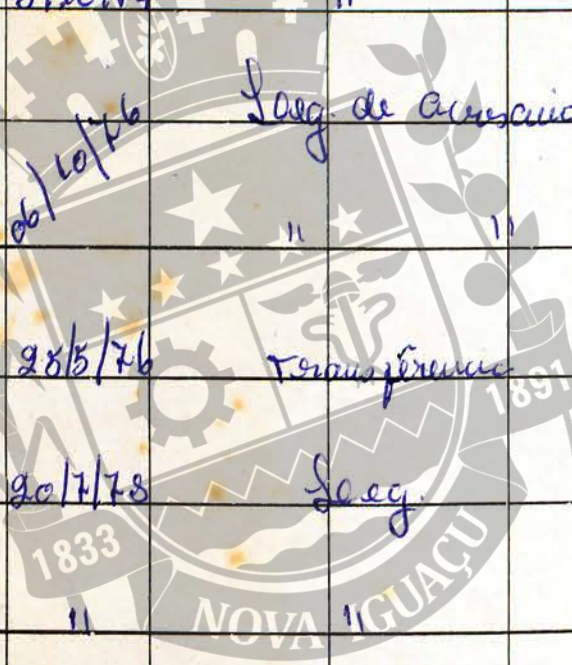 06/10/76 Loeg. de acréscimo
" "
25/5/76 Transferência
20/7/78 Loeg.
" "
1833
1891
NOVA IGUAÇU